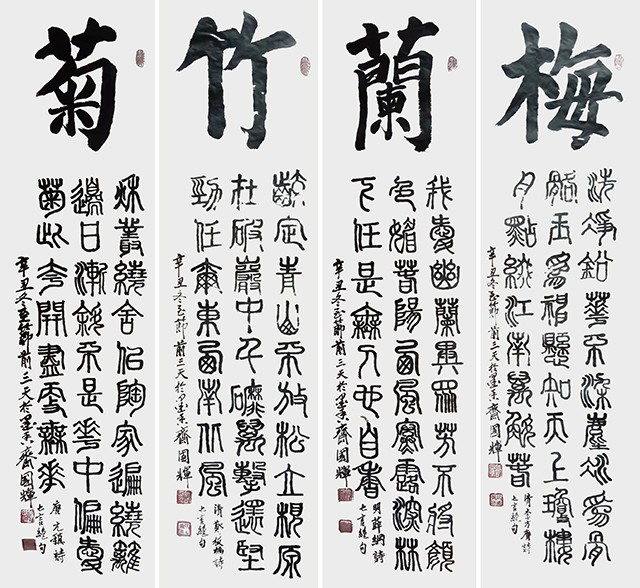 梅
洗淨鉛華不染塵冰為骨
骼玉為神懸知天上瓊樓
月點綴江南萬斛春
辛丑冬至節前三天於墨香齋國輝
清李方膺詩
七言絕句
蘭
我愛幽蘭異眾芳不將顏
色媚春陽西風寒露深林
下任是無人也自香
辛丑冬至節前三天於墨香齋國輝
明薛網詩
七言絕句
竹
咬定青山不放松立根原
在破巖中千磨萬擊還堅
勁任爾東西南北風
辛丑冬至節前三天於墨香齋國輝
清鄭板橋詩
七言絕句
菊
秋叢繞舍似陶家遍繞籬
邊日漸斜不是花中偏愛
菊此花開盡更無花
辛丑冬至節前三天於墨香齋國輝
唐元稹詩
七言絕句